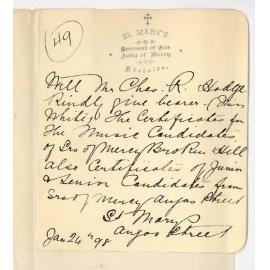 49
ST. MARY'S
Convent of Our
Lady of Mercy
Adelaide.
Will Mr Chas. R. Hodge
Kindly give bearer (Miss
White) The Certificates for
The Music Candidates
of Srs of Mercy Broken Hill
also Certificates of Junior
& Senior Candidates from
Srs of Mercy Angas Street
St Marys
Angas Street
Jan 24th 98